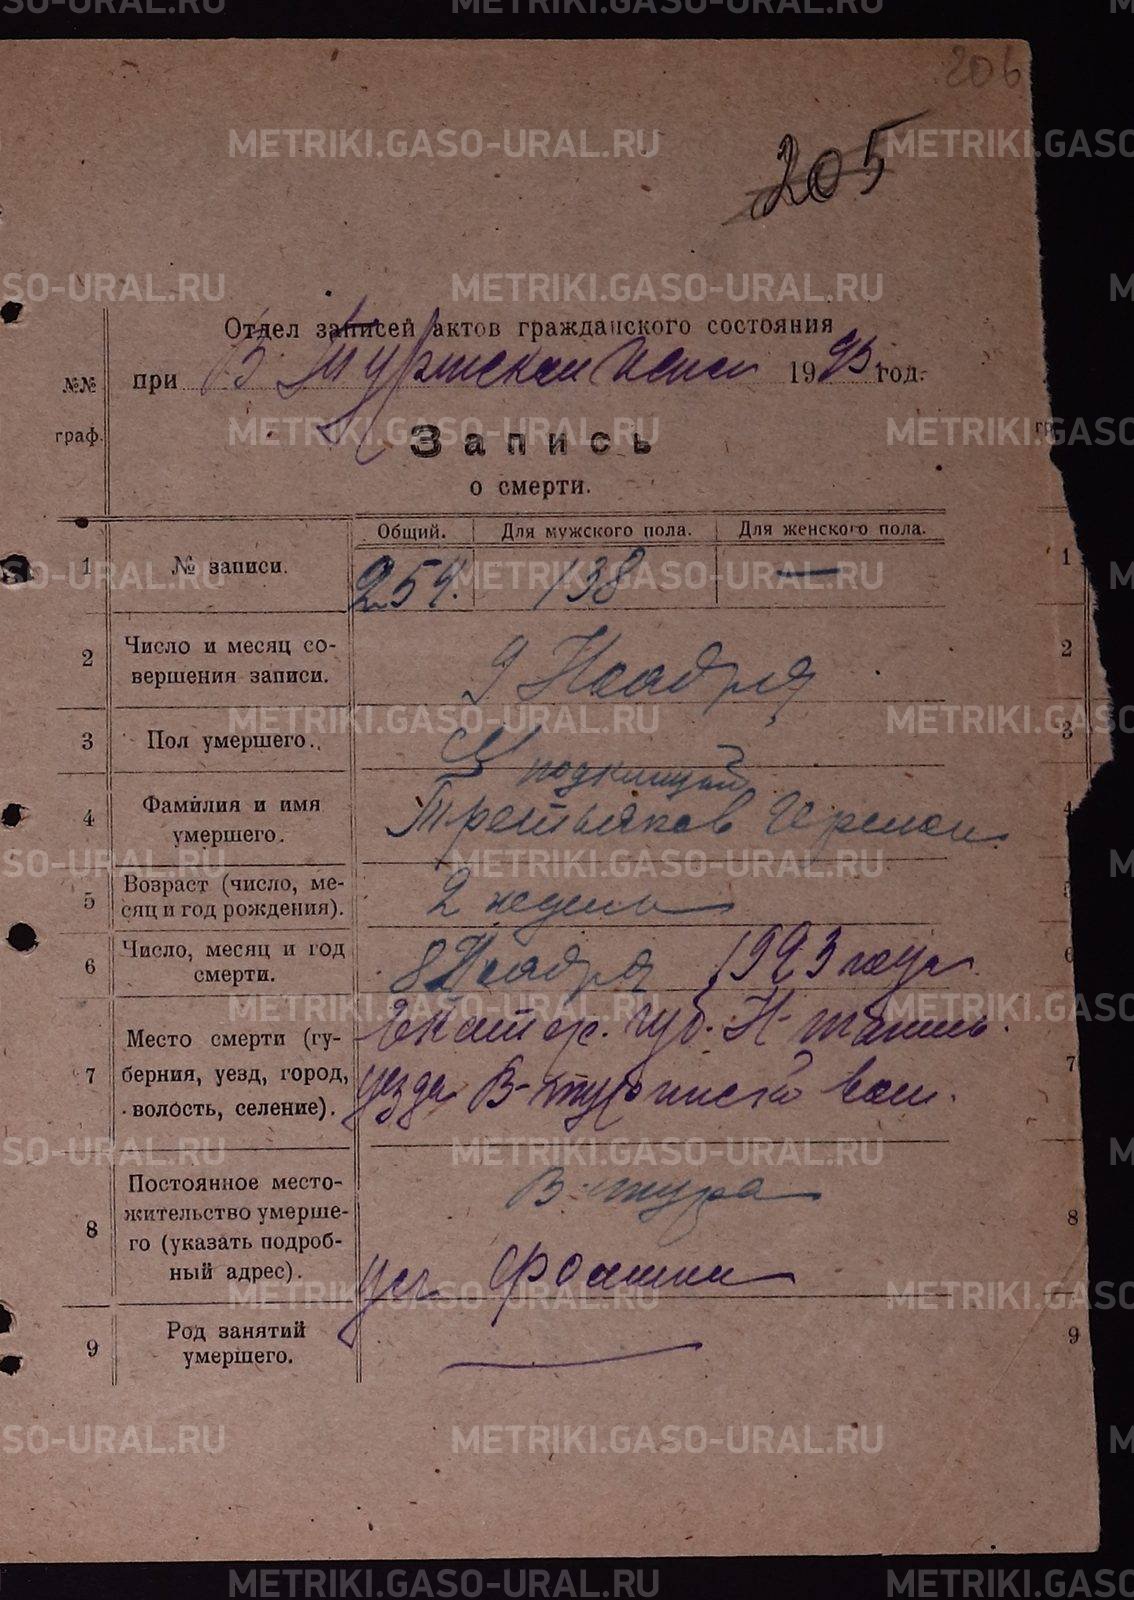 206
205
Отдел записей актов гражданского состояния
при В. Туринском 1923 год.
№№ граф.
Запись
о смерти.
Общий. Для мужского пола. Для женского пола.
1 № записи. 254. 138 — 1
2 Число и месяц совершения записи. 9 Ноября 2
3 Пол умершего. М 3
подкинутый
4 Фамилия и имя умершего. Третьяков Герман 4
5 Возраст (число, месяц и год рождения). 2 недели
6 Число, месяц и год смерти. 8 Ноября 1923 года
7 Место смерти (губерния, уезд, город, волость, селение). Екатер. губ. Н-тагиль. 7
уезда В-туринской вол.
8 Постоянное местожительство умершего (указать подробный адрес). В-тура 8
9 Род занятий умершего. — 9
METRIKI.GASO-URAL.RU